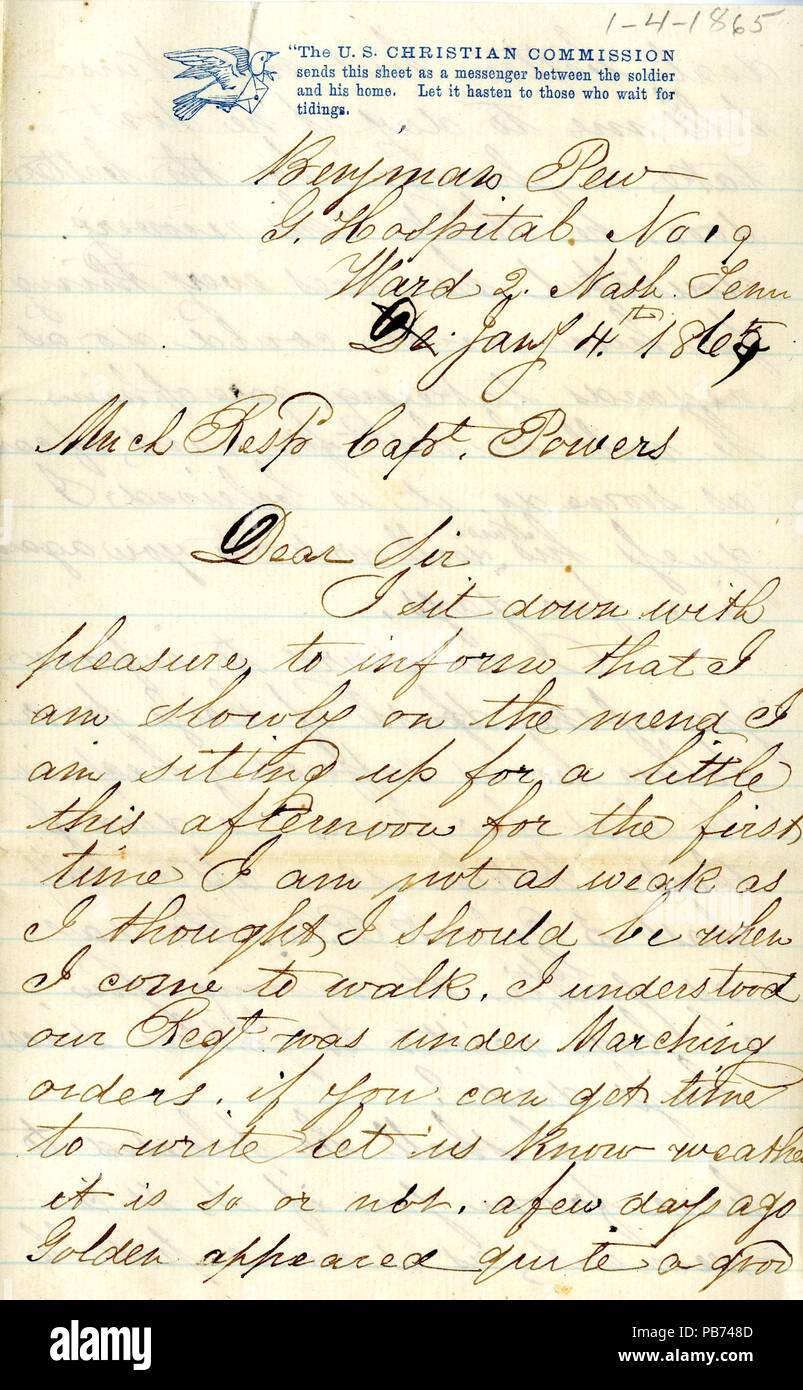 1-4-1865
"The U. S. CHRISTIAN COMMISSION
sends this sheet as a messenger between the soldier
and his home. Let it hasten to those who wait for
tidings.
Benjman Pew
G. Hospital No 19
Ward 2. Nash. Tenn
De. Jany 4.th 1865
Much Resp Capt. Powers
Dear Sir
I sit down with
pleasure to inform that I
am slowly on the mend I
am sitting up for a little
this afternoon for the first
time I am not as weak as
I thought I should be when
I come to walk. I understood
our Regt was under Marching
orders. if you can get time
to write let us know weathe
it is so or not. afew days ago
Golden appeared quite a good
alamy
alamy
Image ID: PB748D
www.alamy.com